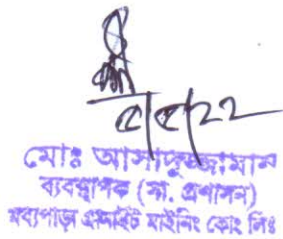 ৫/৫/২২
মোঃ আসাদুজ্জামান
ব্যবস্থাপক (সা. প্রশাসন)
মধ্যপাড়া গ্রানাইট মাইনিং কোং লিঃ